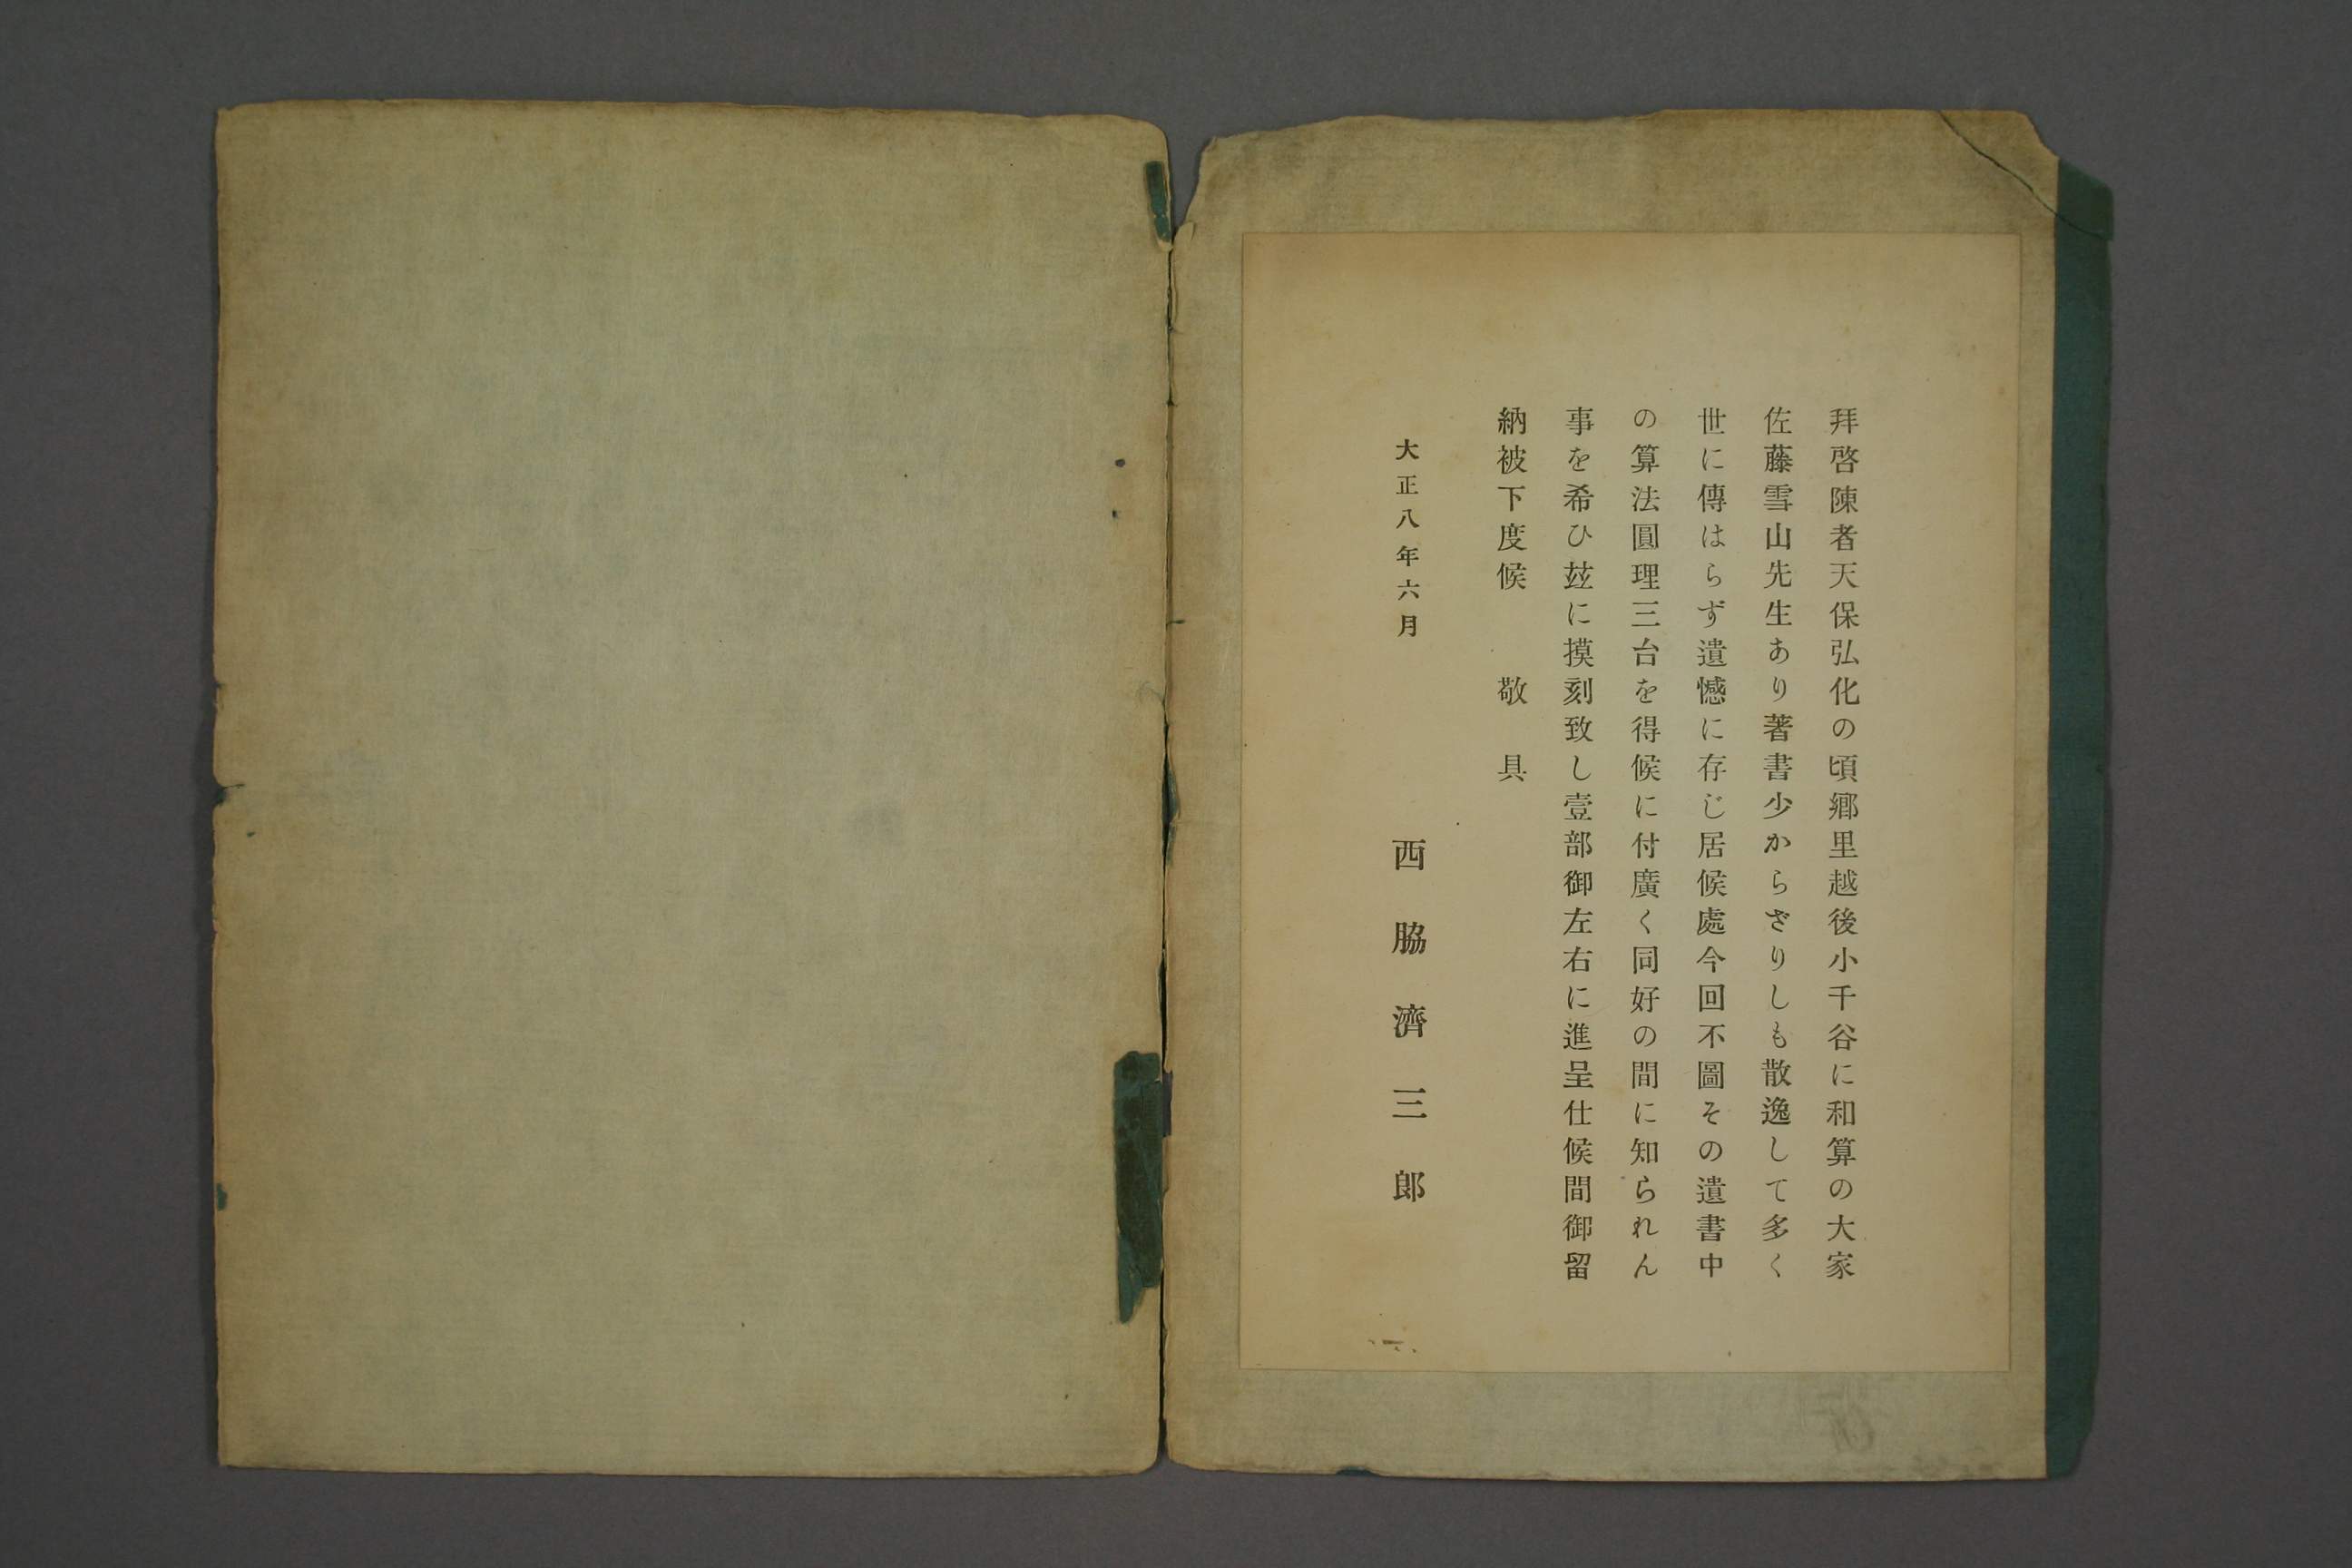 拜啓陳者天保弘化の頃鄕里越後小千谷に和算の大家
佐藤雪山先生あり著書少からざりしも散逸して多く
世に傳はらず遺憾に存じ居候處今回不圖その遺書中
の算法圓理三台を得候に付廣く同好の間に知られん
事を希ひ玆に摸刻致し壹部御左右に進呈仕候間御留
納被下度候　　敬　具
大正八年六月
西脇濟三郎